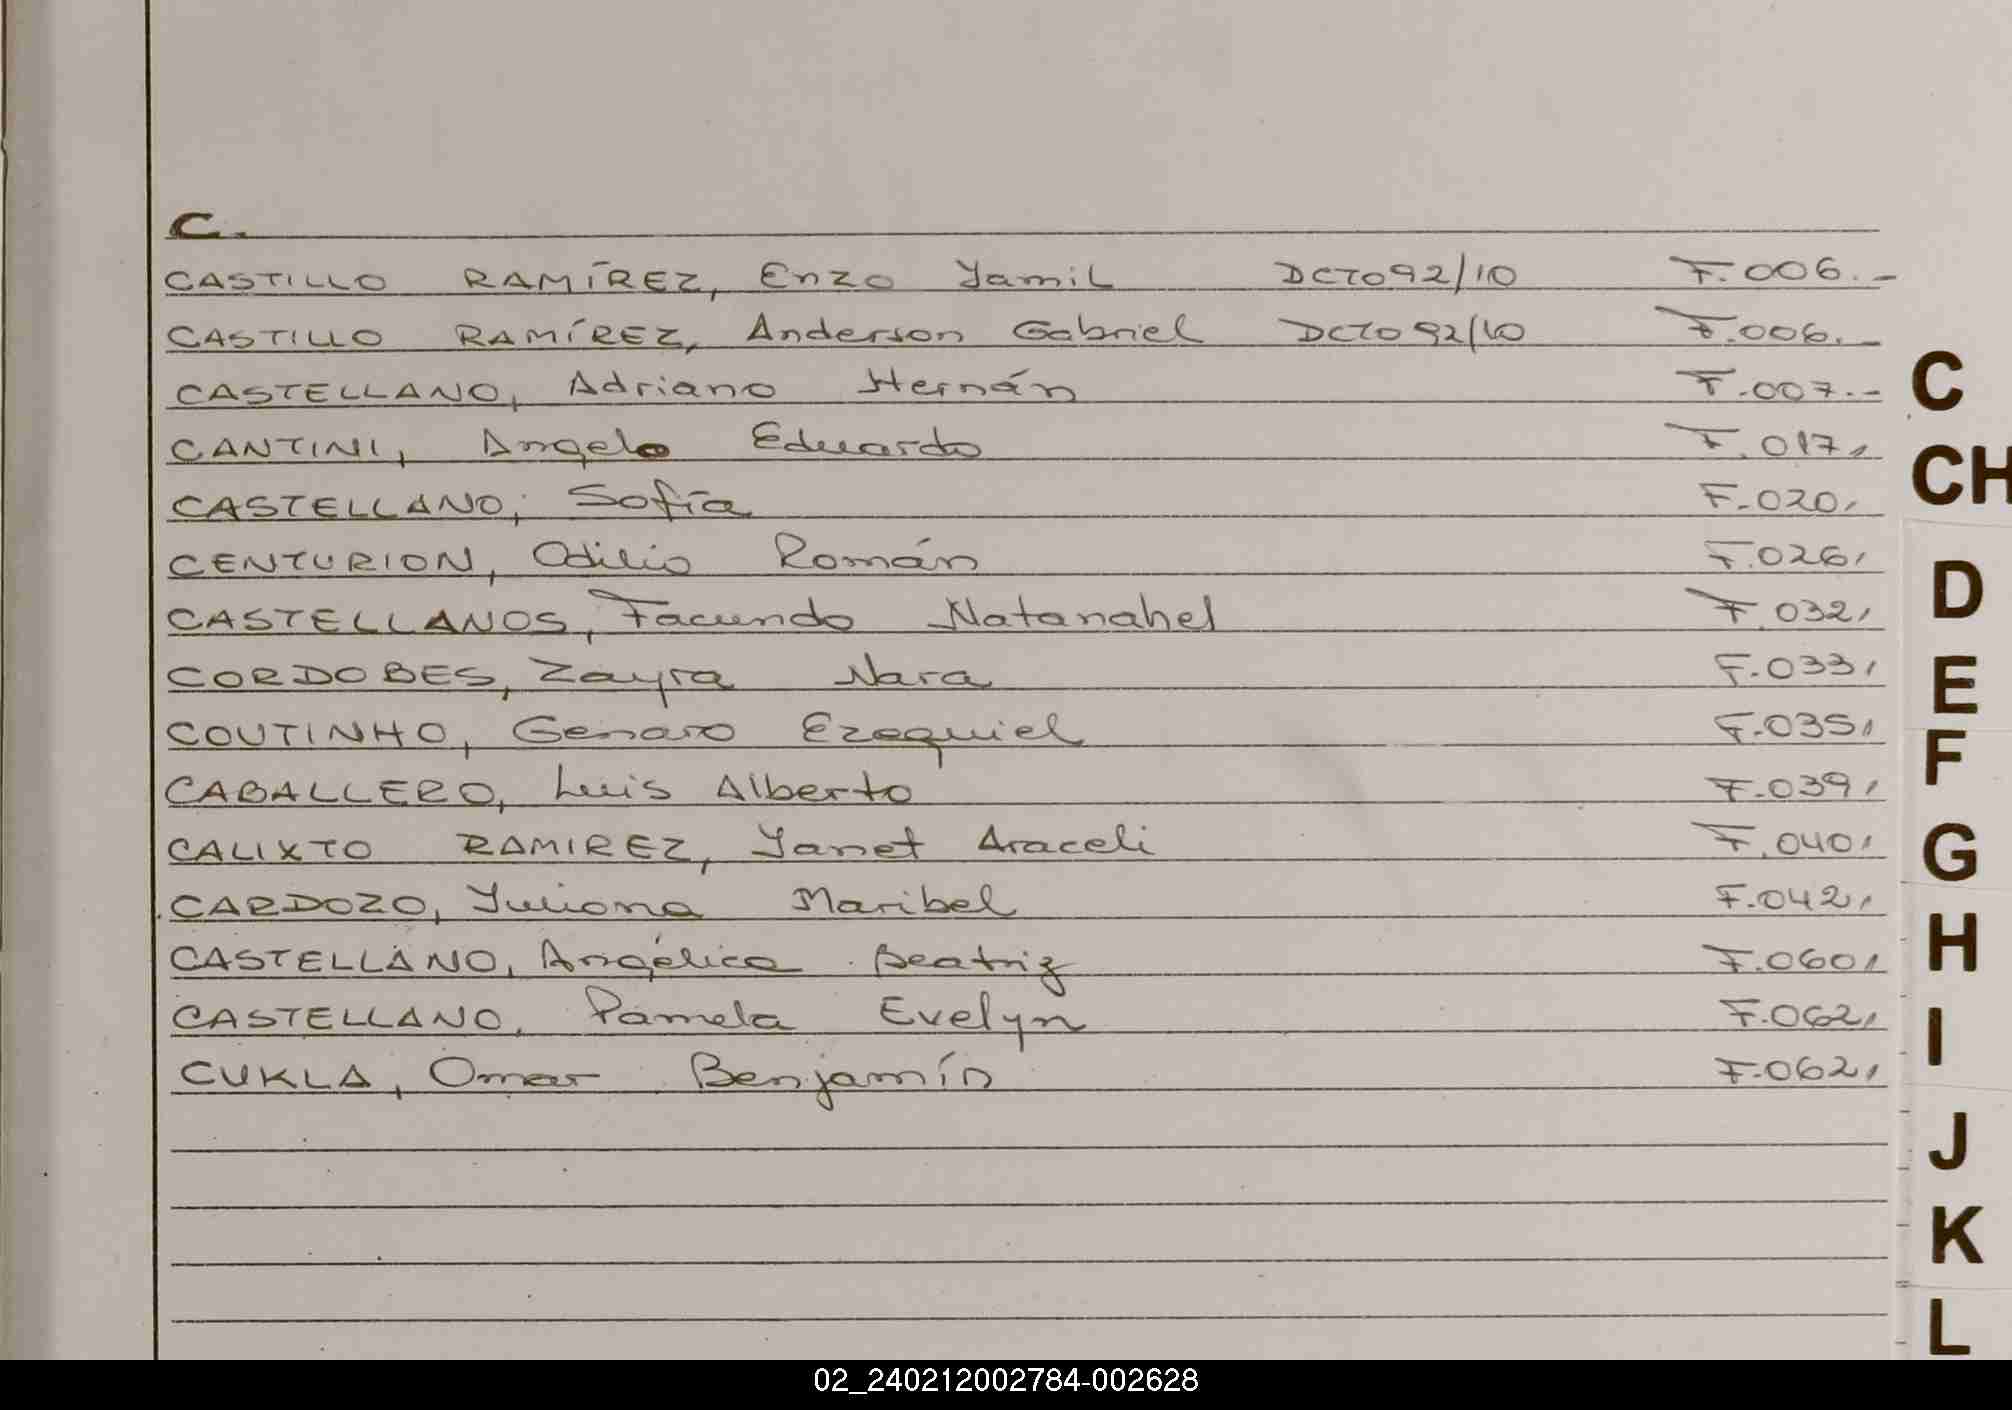 C.
CASTILLO RAMÍREZ, Enzo Yamil DCTO92/10 F.006.-
CASTILLO RAMÍREZ, Anderson Gabriel DCTO92/10 F.006.-
CASTELLANO, Adriano Hernán F.007.-
CANTINI, Angelo Eduardo F.017,
CASTELLANO, Sofía F.020,
CENTURION, Odilio Román F.026,
CASTELLANOS, Facundo Natanahel F.032,
CORDOBES, Zayra Nara F.033,
COUTINHO, Genaro Ezequiel F.035,
CABALLERO, Luis Alberto F.039,
CALIXTO RAMIREZ, Yanet Araceli F.040,
CARDOZO, Yuliana Maribel F.042,
CASTELLANO, Angélica Beatriz F.060,
CASTELLANO, Pamela Evelyn F.062,
CUKLA, Omar Benjamín F.062,
C
CH
D
E
F
G
H
I
J
K
L
02_240212002784-002628